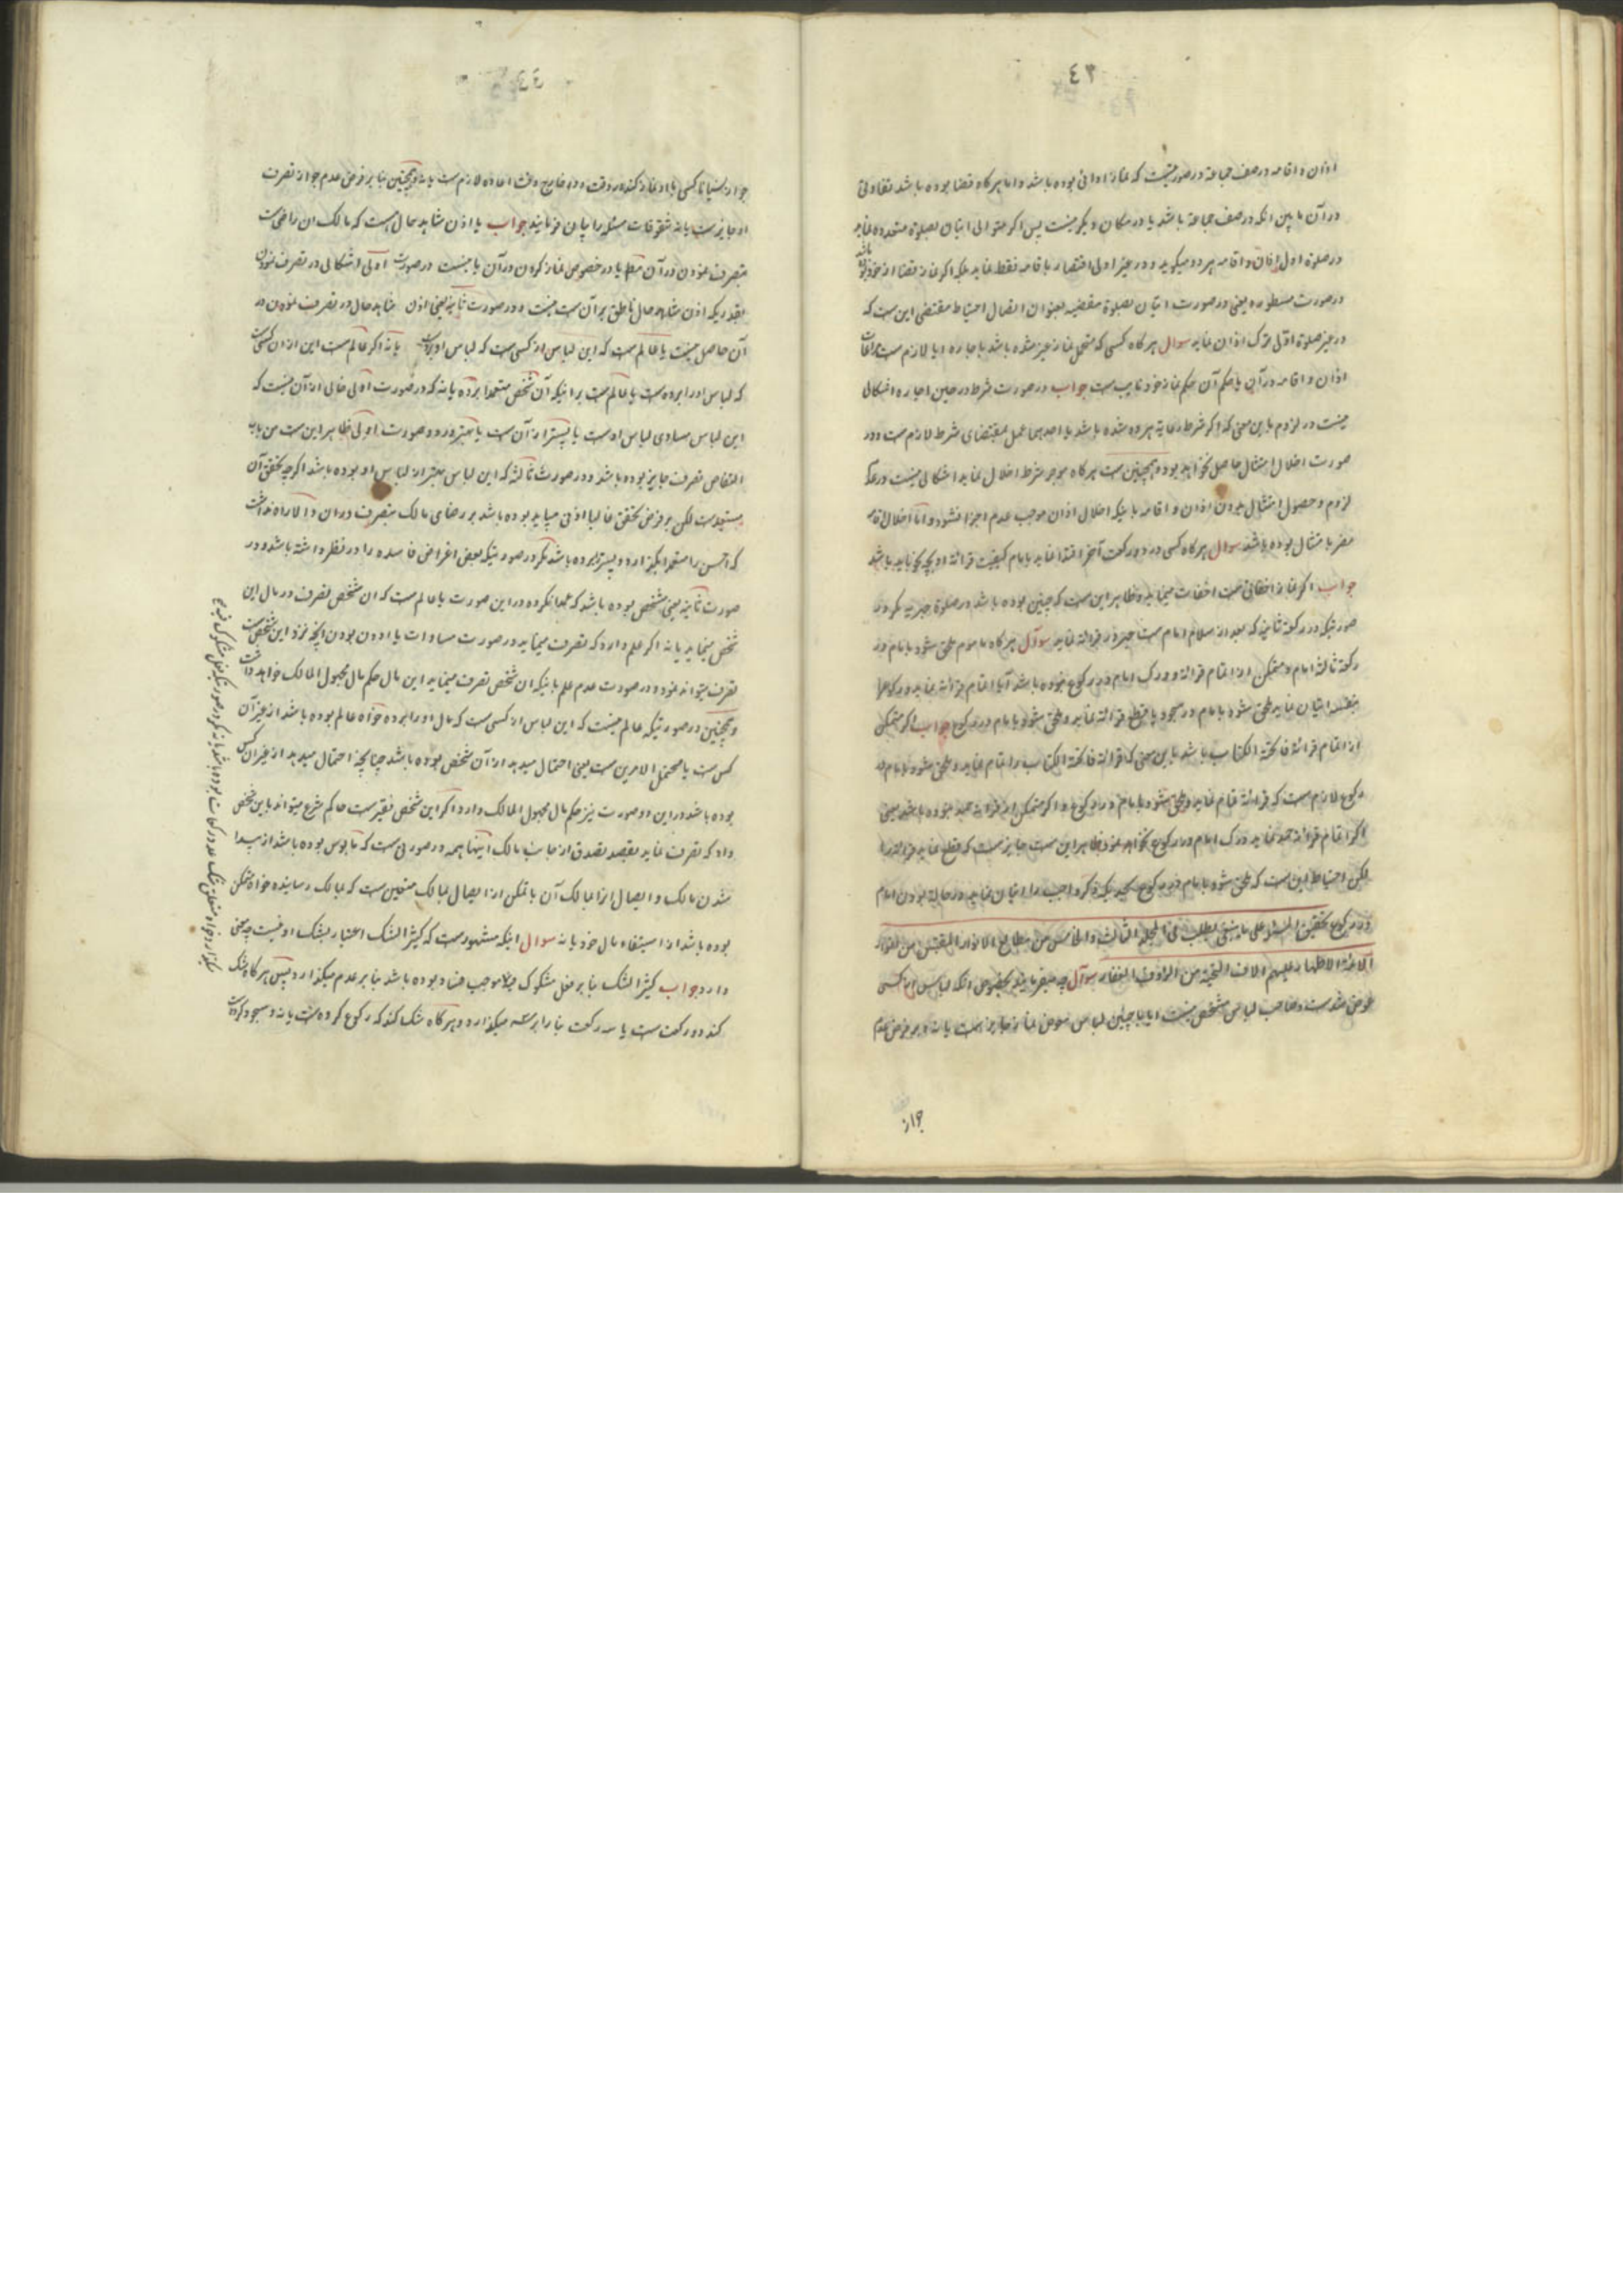 ٤٣
اذان و اقامه در صف جماعة در صورتیست که نماز ادائی بوده باشد و اما هر کاه قضا بوده باشد تفاوتی
در آن ما بین انکه در صف جماعة باشد یا در مکان دیکر نیست پس اکر متوالی اتیان بصلوة متعدده نماید
در صلوة اول اذان و اقامه هر دو میکوید و در غیر اولی اقتصار باقامه فقط نماید بلکه اکر نماز قضا از خود
در صورت مسطوره یعنی در صورت اتیان بصلوة مقضیه بعنوان اتصال احتیاط مقتضی این ست که
در غیر صلوة اولی ترک اذان نماید سوال هر کاه کسی که متحمل نماز غیر شده باشد باجاره ایا لازم ست مراعات
اذان و اقامه در آن یا حکم آن حکم نماز خود نایب ست جواب در صورت شرط در حین اجاره اشکالی
نیست در لزوم باین معنی که اکر شرط رعایة هر دو شده باشد یا احدهما عمل بمقتضای شرط لازم ست و در
صورت اخلال امتثال حاصل نخواهد بود و همچنین ست هر کاه موجر شرط اخلال نماید اشکالی نیست در عدم
لزوم و حصول امتثال بدون اذان و اقامه باینکه اخلال اذان موجب عدم اجزا نشود و اما اخلال اقامه
مضر بامتثال بوده باشد سوال هر کاه کسی در دو رکعت آخر اقتدا نماید بامام کیفیت قرائة او بچه نحو باید باشد
جواب اکر نماز اخفاتی ست اخفات مینماید و ظاهر این ست که چنین بوده باشد در صلوة جهریه مکر در
صورتیکه در رکعة ثانیه که بعد از سلام امام ست جهر در قرائة نماید سوآل هر کاه ماموم ملحق شود بامام در
رکعة ثالثه امام و متمکن از اتمام قرائة و درک امام در رکوع نبوده باشد آیا اتمام قرائة نماید و رکوع را
بنفسه اتیان نماید ملحق شود بامام در سجود یا قطع قرائة نماید و ملحق شود بامام در رکوع جواب اکر متمکن
از اتمام قرائة فاتحة الکتاب باشد باین معنی که قرائة فاتحة الکتاب را تمام نماید و ملحق شود بامام در
رکوع لازم ست که قرائة تمام نماید و ملحق شود بامام در رکوع و اکر متمکن از قرائة حمد نبوده باشد یعنی
اکر اتمام قرائة حمد نماید درک امام در رکوع نخواهد نمود ظاهر این ست جایز ست که قطع نماید قرائة را
لکن احتیاط این ست که ملحق شود بامام در رکوع بحیثیکه ذکر واجب را اتیان نماید در حالة بودن امام
در رکوع تحقیق المسئلة علی ما ینبغی یطلب فی المجلد الثالث و الخامس من مطالع الانوار المقتبس من انوار
الائمة الاطهار علیهم الاف التحیة من الرؤف الغفار سوآل چه میفرمایند بخصوص انکه لباس از کسی
عوض شد ست و صاحب لباس مشخص نیست ایا با چنین لباس عوض نماز جایز ست یا نه و بر فرض عدم
جواز
٤٤
جواز نسیانا کسی با او نماز کند در وقت و در خارج وقت اعاده لازم ست یا نه و همچنین بنا بر فرض عدم جواز تصرف
او جایز ست یا نه شقوقات مسئله را بیان فرمایند جواب یا اذن شاهد حال هست که مالک ان راضی ست
بتصرف نمودن در آن مطلقا یا در خصوص نماز کردن در آن یا نیست در صورت اولی اشکالی در تصرف نمودن
بقدریکه اذن شاهد حال ناطق بر آن ست نیست و در صورت ثانیه یعنی اذن شاهد حال در تصرف نمودن در
آن حاصل نیست یا عالم ست که این لباس از کسی ست که لباس او برده ست یا نه اکر عالم ست این از ان کسی ست
که لباس او را برده ست یا عالم ست براینکه آن شخص متعمدا برده یا نه که در صورت اولی خالی از آن نیست که
این لباس مساوی لباس اوست یا پستر از آن ست یا بهتر در دو صورت اولی ظاهر این ست من باب
التقاص تصرف جایز بوده باشد و در صورت ثالثه که این لباس بهتر از لباس او بوده باشد اکر چه تحقق آن
مستبعد ست لکن بر فرض تحقق غالبا اذن میباید بوده باشد بر رضای مالک بتصرف در ان و الا راه نداشت
که احسن را متعمدا بکذارد و پستر ببرده باشد مکر در صورتیکه بعض اغراض فاسده را در نظر داشته باشد و در
صورت ثانیه یعنی مشخص بوده باشد که عمدا نکرده در این صورت یا عالم ست که ان شخص تصرف در مال این
شخص مینماید یا نه اکر علم دارد که تصرف مینماید در صورت مساوات یا ادون بودن انچه نزد این شخص ست
تصرف میتواند نمود و در صورت عدم علم باینکه ان شخص تصرف مینماید این مال حکم مال مجهول المالک خواهد داشت
و همچنین در صورتیکه عالم نیست که این لباس از کسی ست که مال او را برده خواه عالم بوده باشد از غیر آن
کس ست یا محتمل الامرین ست یعنی احتمال میدهد از آن شخص بوده باشد چنانچه احتمال میدهد از غیر ان کس
بوده باشد در این دو صورت نیز حکم مال مجهول المالک دارد اکر این شخص فقیر ست حاکم شرع میتواند باین شخص
داد که تصرف نماید بقصد تصدق از جانب مالک اینها همه در صورتی ست که مأیوس بوده باشد از پیدا
شدن مالک و ایصال انرا بمالک آن با تمکن از ایصال بمالک متعین ست که بمالک رسانیده خواه متمکن
بوده باشد از استیفاء مال خود یا نه سوال اینکه مشهور ست که کثیر الشک اعتبار بشک او نیست چه معنی
دارد جواب کثیر الشک بنا بر فعل مشکوک فیه موجب فساد بوده باشد بنا بر عدم میکذارد پس هر کاه شک
کند دو رکعت ست یا سه رکعت بنا را بر سه میکذارد و هر کاه شک کند که رکوع کرده ست یا نه و سجود کرده